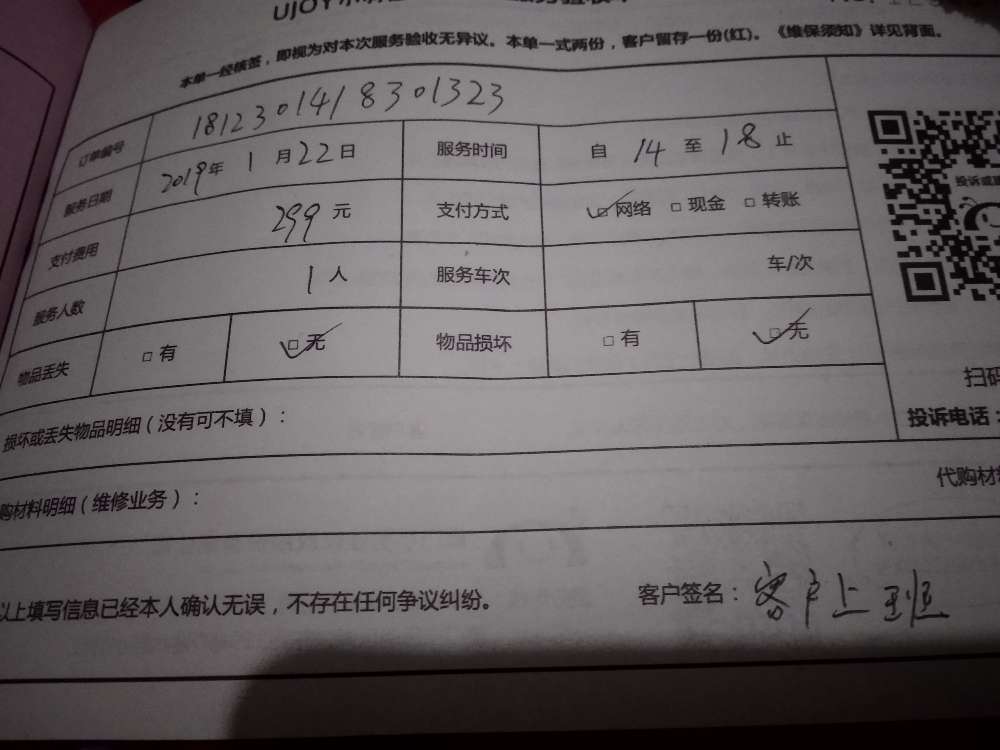 UJOY
本单一经核签，即视为对本次服务验收无异议。本单一式两份，客户留存一份(红)。《维保须知》详见背面。
订单编号 1812301418301323
服务日期 2019年 1 月 22 日 服务时间 自 14 至 18 止
支付费用 299 元 支付方式 ☑ 网络 □ 现金 □ 转账
服务人数 1 人 服务车次 车/次
物品丢失 □ 有 ☑ 无 物品损坏 □ 有 ☑ 无
投诉或
扫码
损坏或丢失物品明细（没有可不填）： 投诉电话：
购材料明细（维修业务）： 代购材
以上填写信息已经本人确认无误，不存在任何争议纠纷。 客户签名：客户上班